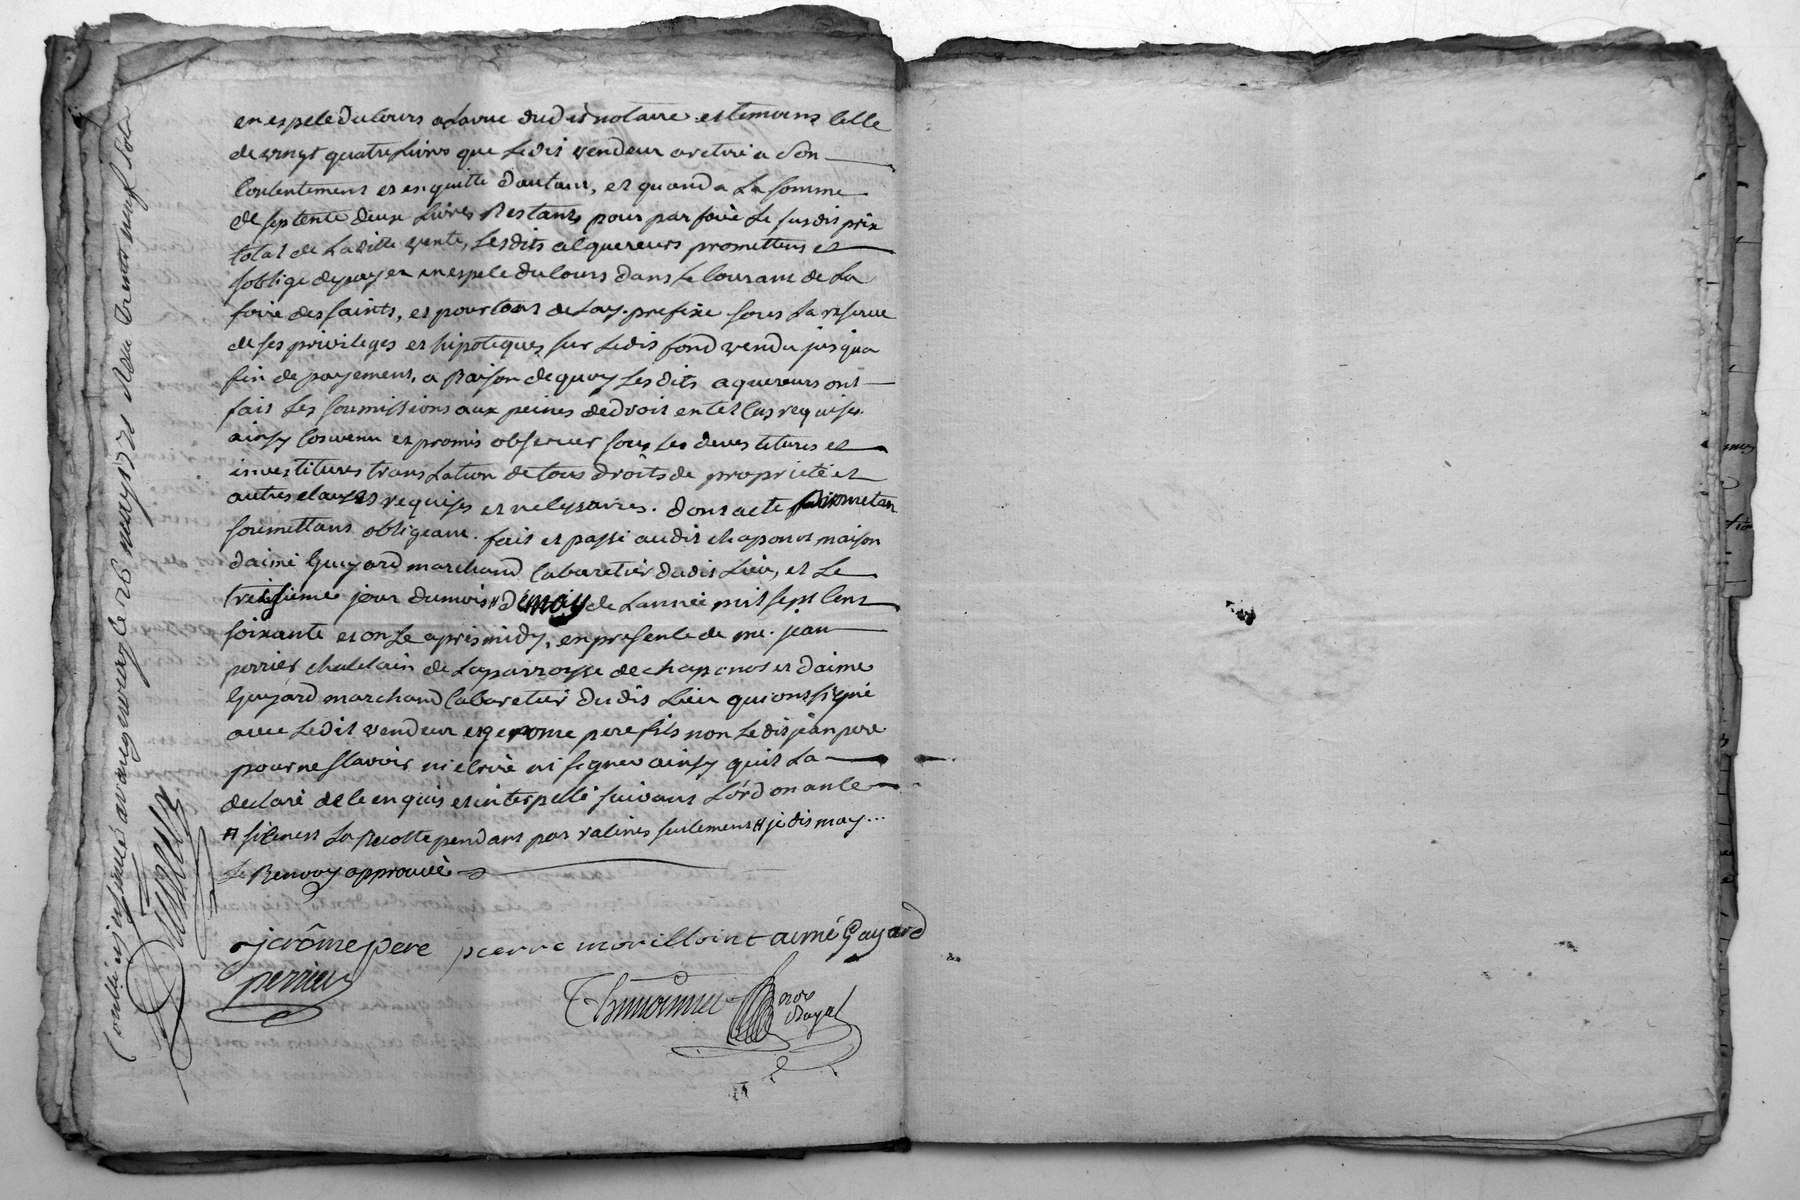 en espece du cours a la vue dudit notaire et temoins celle
de vingt quatre livres que ledit vendeur a retiré a son
contentement et en quitte d'autant, et quand a la somme
de septente deux livres restants pour parfaire le susdit prix
total de laditte vente, lesdits acquereurs promettent et
soblige de payer en espece du cours dans le courant de la
foire des saints, et pour tout delay prefixé sous la reserve
de ses privileges et hipoteques sur ledit fond vendu jusqua
fin de payement, a raison de quoy lesdits aquereurs ont
fait les soumissions aux peines de droit en tel cas requises
ainsy convenu et promis observer sous les devestitures et
investitures translation de tous droits de proprieté et
autres clauses requises et necessaires. dont acte
soumettant obligeant. fait et passé audit chaponost maison
daimé Guyard marchand cabaretier dudit lieu, et le
treisieme jour du mois # de may de l'année mil sept cent
soixante et onze apres midy, en presence de me. jean
perrier chatelain de la parroisse de chaponost et daimé
Guyard marchand cabaretier dudit lieu qui ont signé
avec ledit vendeur et gerome pere fils non ledit jean pere
pour ne scavoir ni ecrire ni signer ainsy quil la
declaré de ce enquis et interpellé suivant l'ordonance
# si cenest la recolte pendant par racines seulement # je dis may...
le renvoy approuvé
jerôme pere pierre morilloint aimé Gayard
perrier
nore
Royal
Controllé et insinué a vaugneray le 26 may 1771 Reçu trente neuf sols